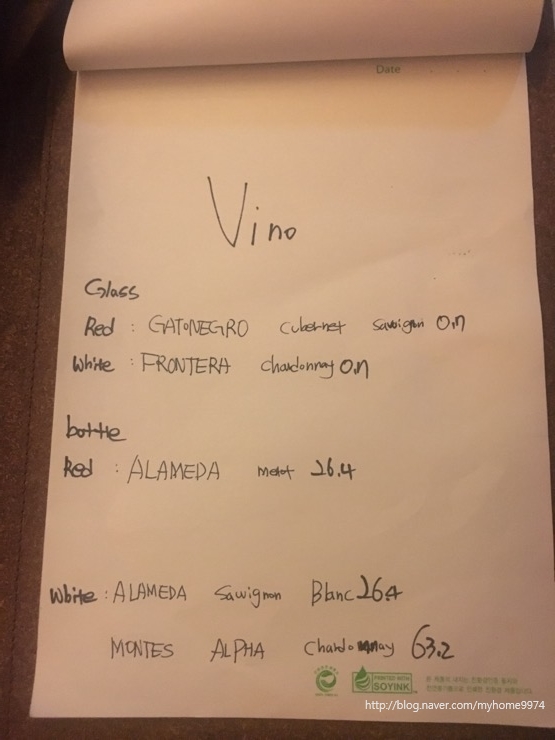 Date
Vino
Glass
Red : GATONEGRO Cubernet Sauvignon
White : FRONTERA Chardonnay
bottle
Red : ALAMEDA merlot 26.4
White : ALAMEDA Sauvignon Blanc 26.4
MONTES ALPHA Chardonnay 63.2
PRINTED WITH
SOYINK
http://blog.naver.com/myhome9974